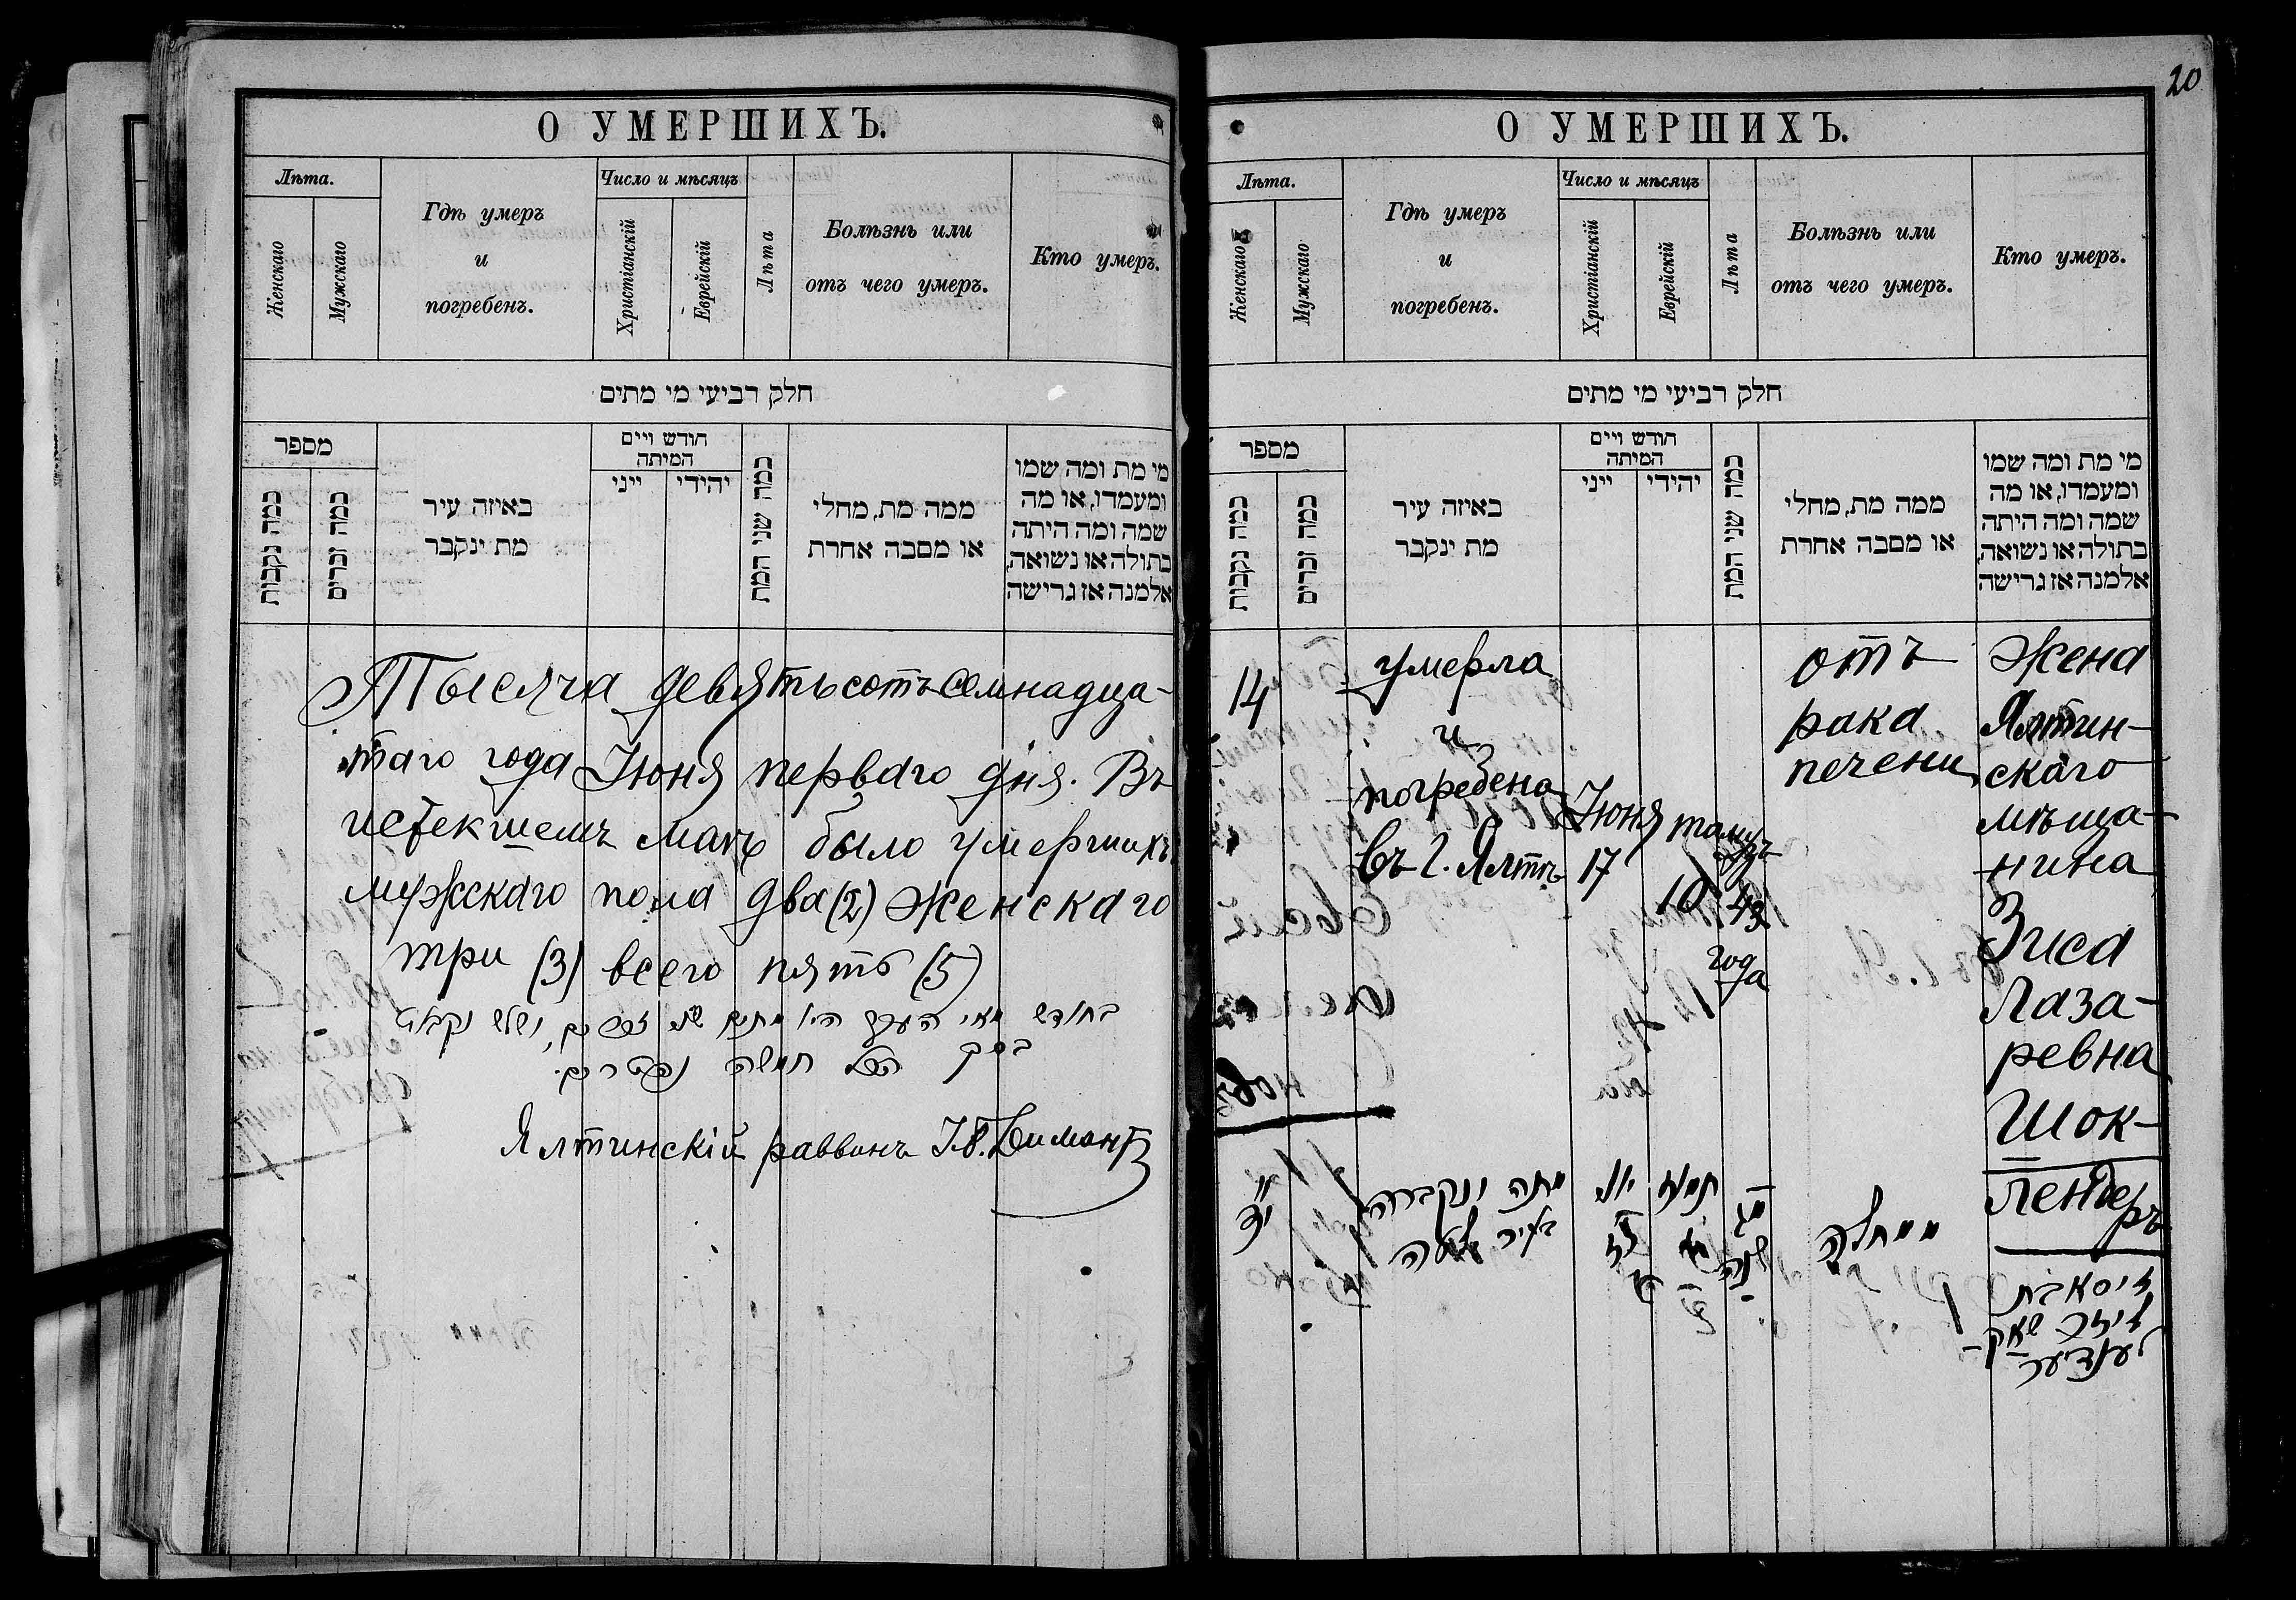 О УМЕРШИХЪ.
Лѣта.
Женскаго
Мужскаго
Гдѣ умеръ
и
погребенъ.
Число и мѣсяцъ
Христіанскій
Еврейскій
Лѣта
Болѣзнь или
отъ чего умеръ.
Кто умеръ.
חלק רביעי מי מתים
מספר
כמה נקבות
כמה זכרים
באיזה עיר
מת ינקבר
חודש ויים
המיתה
ייני
יהידי
כמה שני המת
ממה מת, מחלי
או מסבה אחרת
מי מת ומה שמו
ומעמדו, או מה
שמה ומה היתה
בתולה או נשואה,
אלמנה אז גרישה
Тысяча девятьсотъ семнадца-
таго года Іюня перваго дня. Въ
истекшемъ маѣ было умершихъ
мужскаго пола два (2) женскаго
три (3) всего пять (5)
בחודש מאי העבר היו מתים שני זכרים, ושלש נקבות
בסך הכל חמשה נפטרים.
Ялтинскій раввинъ
20
О УМЕРШИХЪ.
Лѣта.
Женскаго
Мужскаго
Гдѣ умеръ
и
погребенъ.
Число и мѣсяцъ
Христіанскій
Еврейскій
Лѣта
Болѣзнь или
отъ чего умеръ.
Кто умеръ.
חלק רביעי מי מתים
מספר
כמה נקבות
כמה זכרים
באיזה עיר
מת ינקבר
חודש ויים
המיתה
ייני
יהידי
כמה שני המת
ממה מת, מחלי
או מסבה אחרת
מי מת ומה שמו
ומעמדו, או מה
שמה ומה היתה
בתולה או נשואה,
אלמנה אז גרישה
14
умерла
и
погребена
въ г. Ялтѣ
Іюня
17
тамузъ
10
43
года
отъ
рака
печени
Жена
Ялтин-
скаго
мѣща-
нина
Зиса
Лаза-
ревна
Шок-
лендеръ
י"ד
מתה ונקברה
בעיר יאלטה
יוני
תמוז
מג
שנה
ממחלה
זיסא בת
לעזר שאק-
לענדער